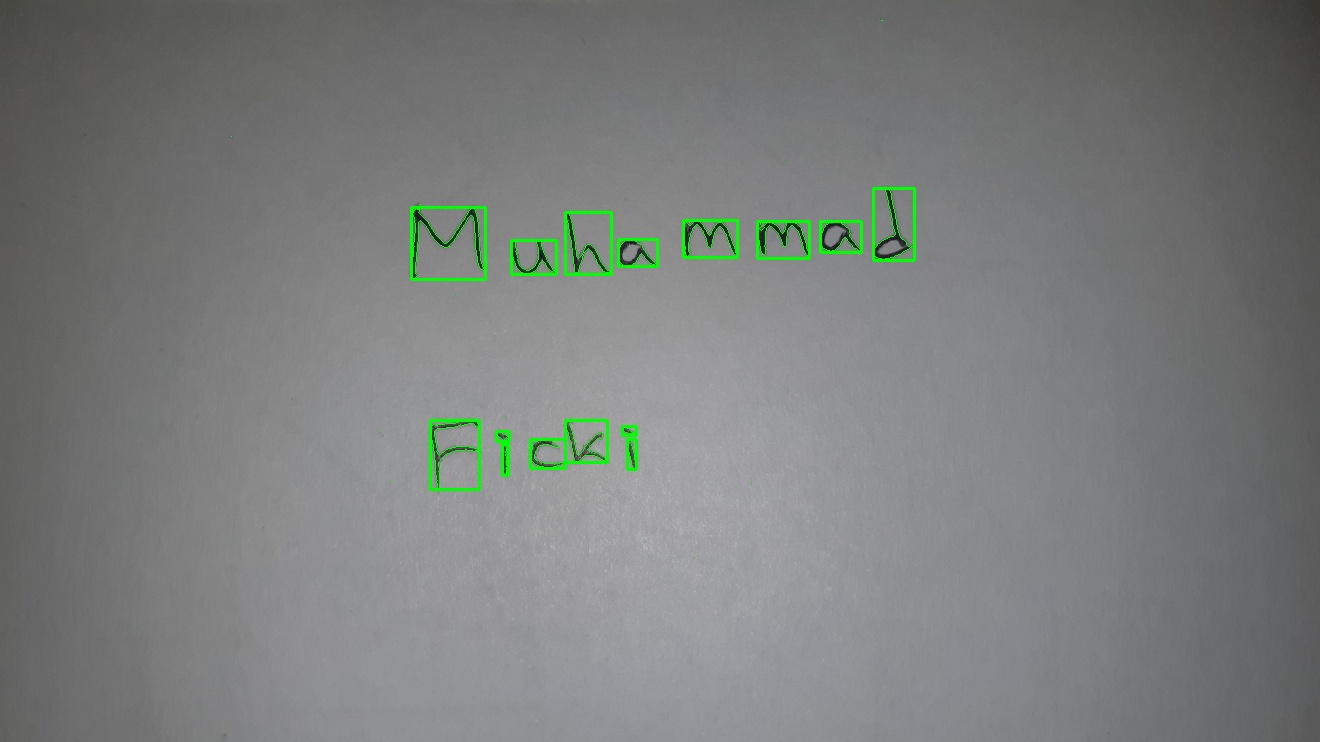 Muhammad
Ficki